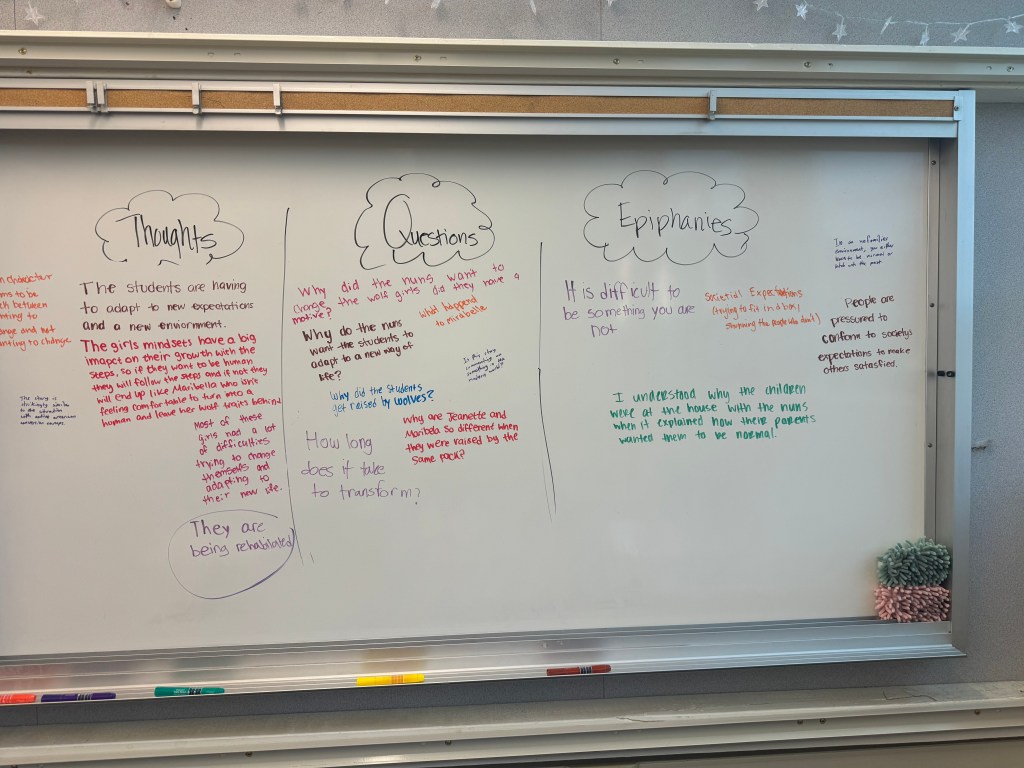 Thoughts
to be
between
to
and not
to change
The students are having
to adapt to new expectations
and a new enviornment.
The girls mindsets have a big
imapct on their growth with the
steps, so if they want to be human
they will follow the steps and if not they
will end up like Maribella who isn't
feeling comfortable to turn into a
human and leave her wolf traits behind
This story is
strikingly similar
to the situation
with native american
conversion camps.
Most of these
girls had a lot
of difficulties
trying to change
themselfs and
adapting to
their new life.
They are
being rehabilitated
Questions
Why did the nuns want to
change the wolf girls did they have a
motive?
what happend
to mirabelle
Why do the nuns
want the students to
adapt to a new way of
life?
Is this story
commenting on
something in the
modern world?
Why did the students
get raised by wolves?
Why are Jeanette and
Maribela so different when
they were raised by the
same pack?
How long
does it take
to transform?
Epiphanies
In an unfamiliar
environment, you either
learn to be normal or
with the
It is difficult to
be something you are
not
Societial Expectations
(trying to fit in a box)
shunning the people who don't)
People are
pressured to
conform to societys
expectations to make
others satasfied.
I understood why the children
were at the house with the nuns
when it explained how their parents
wanted them to be normal.